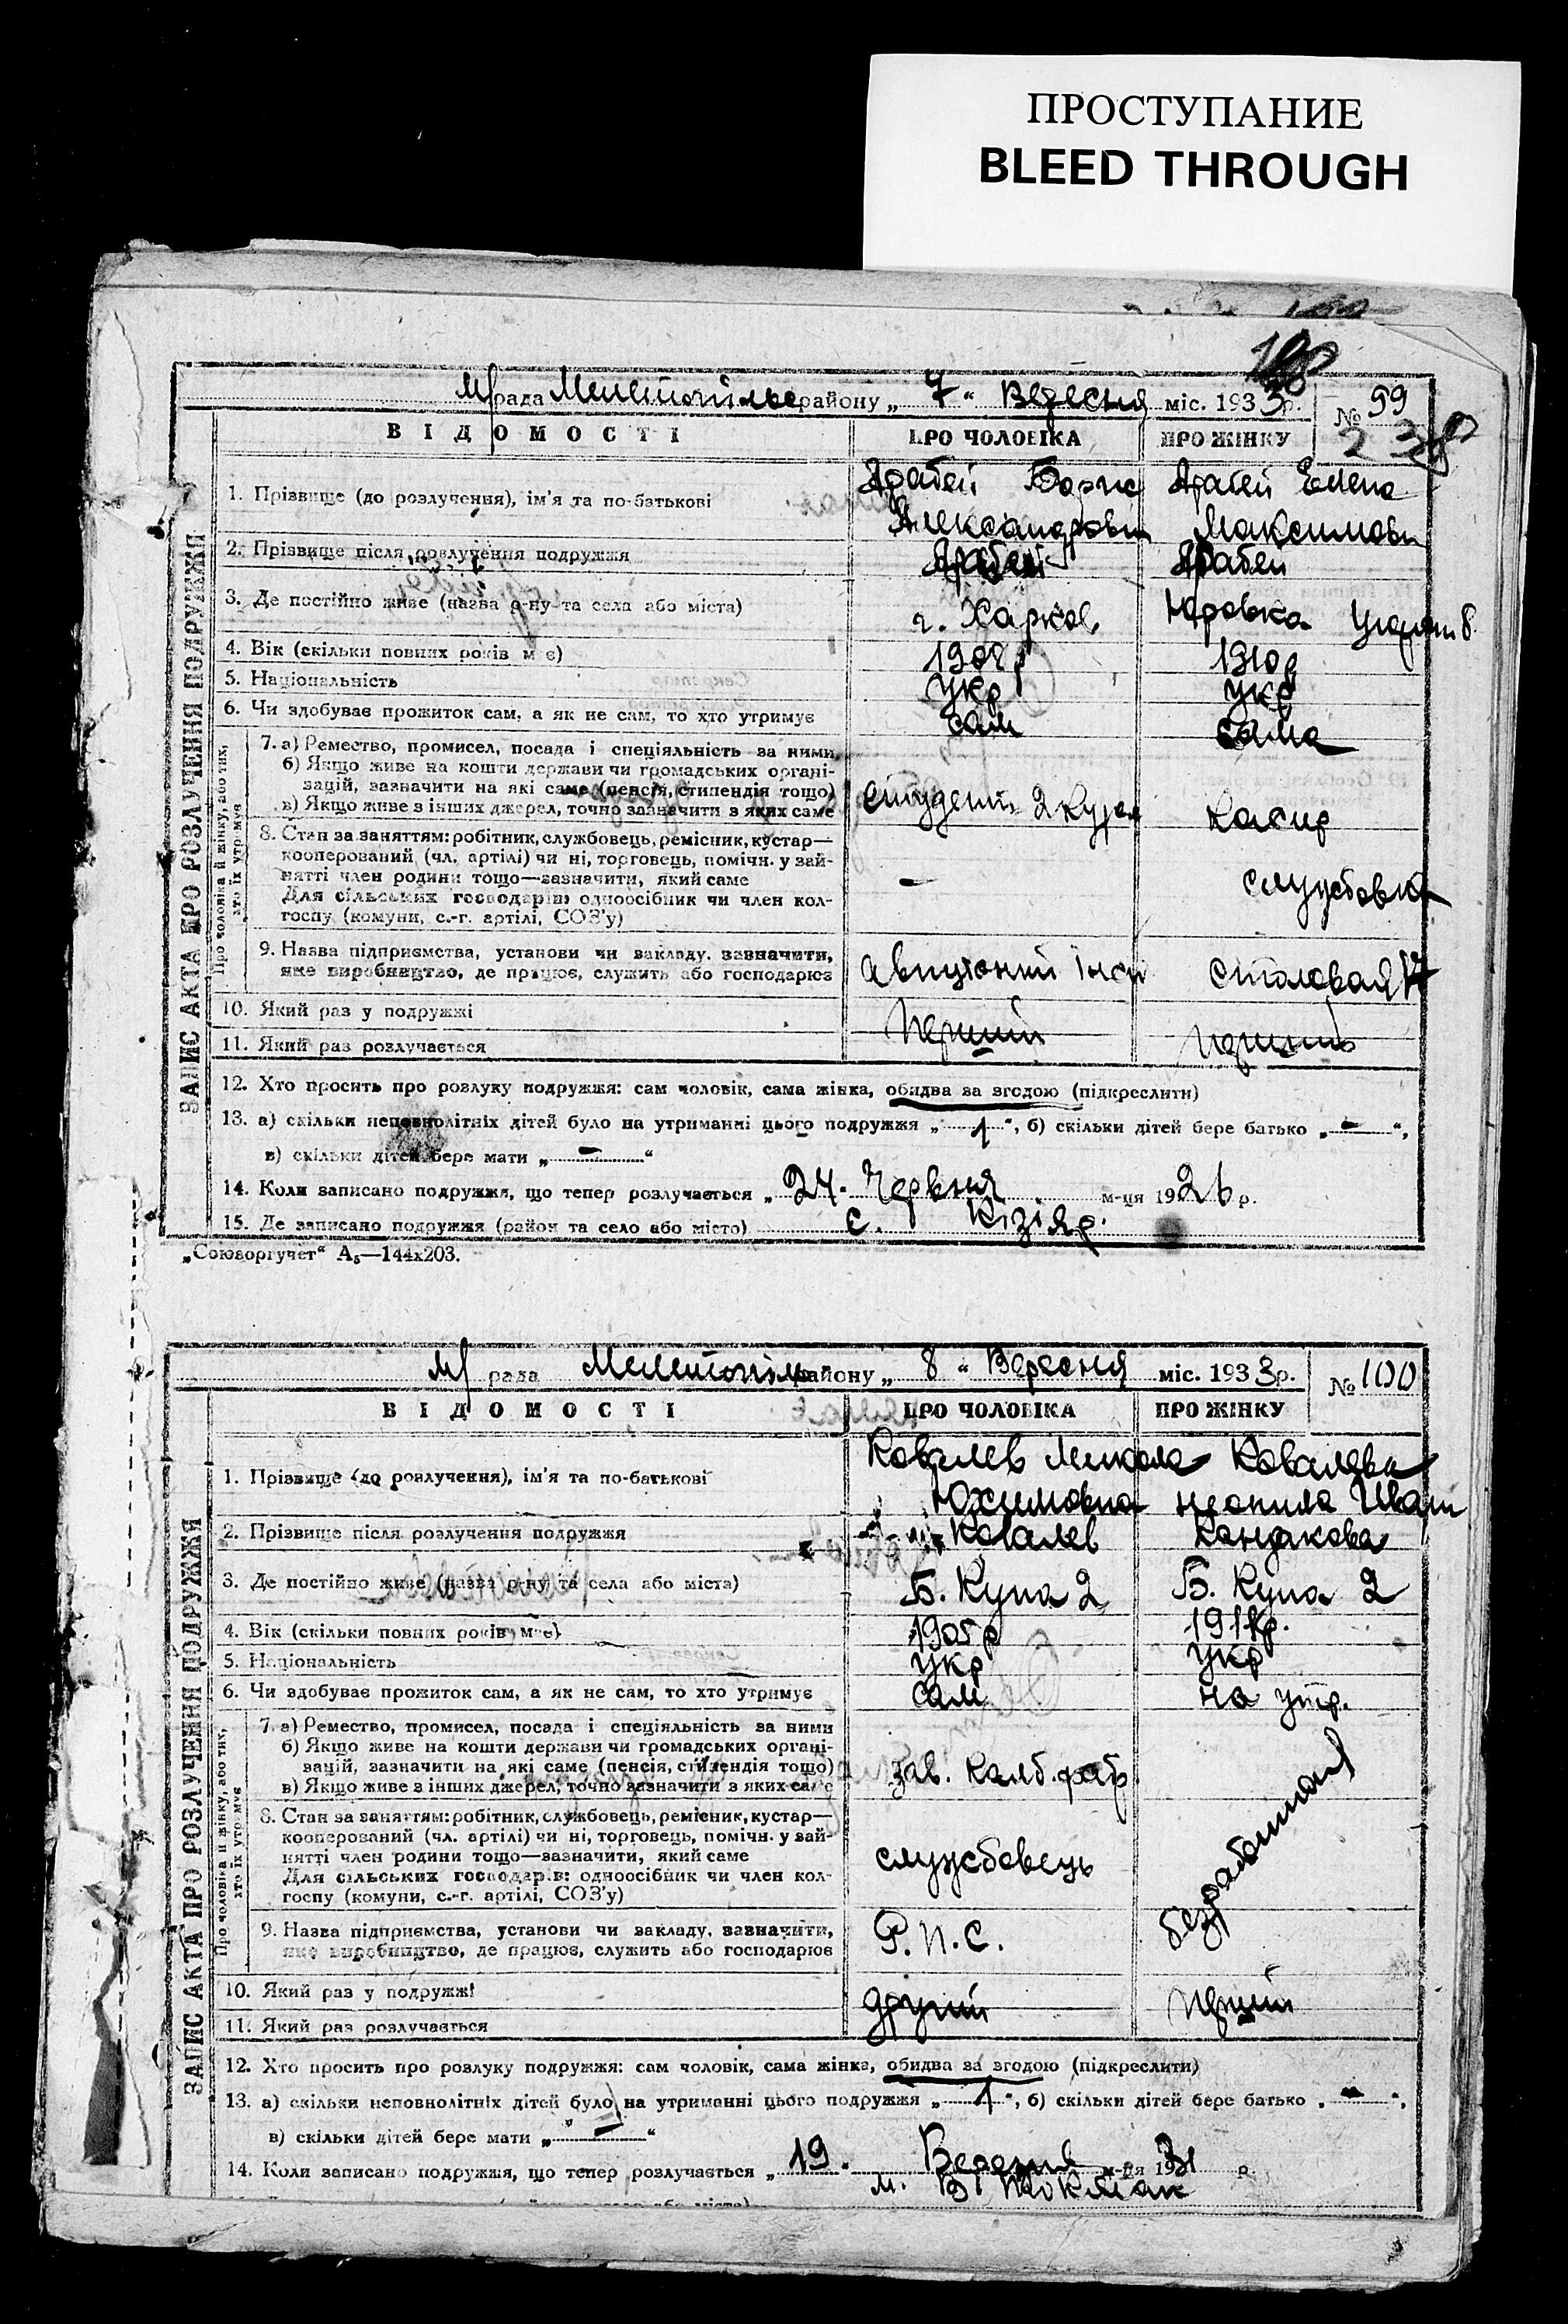 ПРОСТУПАНИЕ
BLEED THROUGH
м/рада Мелітопільс району „ 7 “ Вересня міс. 1933 р. № 99
238
ВІДОМОСТІ ПРО ЧОЛОВІКА ПРО ЖІНКУ
ЗАПИС АКТА ПРО РОЗЛУЧЕННЯ ПОДРУЖЖЯ
1. Прізвище (до розлучення), ім'я та по-батькові Арабей Борис Арабей Елена
Александрови Максимовн
2. Прізвище після розлучення подружжя Арабей Арабей
3. Де постійно живе (назва р-ну та села або міста) г. Харков Юровка 8
4. Вік (скільки повних років має) 1908р 1910р
5. Національність укр укр
6. Чи здобуває прожиток сам, а як не сам, то хто утримує сам сама
Про чоловіка й жінку, або тих, хто їх утримує
7. а) Ремество, промисел, посада і спеціяльність за ними
б) Якщо живе на кошти держави чи громадських органі-
зацій, зазначити на які саме (пенсія, стипендія тощо)
в) Якщо живе з інших джерел, точно зазначити з яких саме студент 2 курса касир
8. Стан за заняттям: робітник, службовець, ремісник, кустар—
кооперований (чл. артілі) чи ні, торговець, помічн. у зай-
нятті член родини тощо—зазначити, який саме -
Для сільських господарів: одноосібник чи член кол- службовка
госпу (комуни, с.-г. артілі, СОЗ'у)
9. Назва підприємства, установи чи закладу, зазначити,
яке виробництво, де працює, служить або господарює авиційний інст столовая 17
10. Який раз у подружжі перший перший
11. Який раз розлучається
12. Хто просить про розлуку подружжя: сам чоловік, сама жінка, обидва за згодою (підкреслити)
13. а) скільки неповнолітніх дітей було на утриманні цього подружжя „ 1 “, б) скільки дітей бере батько „ - “,
в) скільки дітей бере мати „ - “
14. Коли записано подружжя, що тепер розлучається „ 24. Червня м-ця 1926 р.
15. Де записано подружжя (район та село або місто) с. Кізіяр.
„Союзоргучет“ А₅—144х203.
м/ рада Мелітопіль району „ 8 “ Вересня міс. 1933 р. № 100
ВІДОМОСТІ ПРО ЧОЛОВІКА ПРО ЖІНКУ
ЗАПИС АКТА ПРО РОЗЛУЧЕННЯ ПОДРУЖЖЯ
1. Прізвище (до розлучення), ім'я та по-батькові Ковалев Микола Ковалева
Юхимовна Неонила Иван
2. Прізвище після розлучення подружжя Ковалев Кандакова
3. Де постійно живе (назва р-ну та села або міста) Б. Купа 2 Б. Купа 2
4. Вік (скільки повних років має) 1905р 1911р.
5. Національність укр укр
6. Чи здобуває прожиток сам, а як не сам, то хто утримує сам на утр.
Про чоловіка й жінку, або тих, хто їх утримує
7. а) Ремество, промисел, посада і спеціяльність за ними
б) Якщо живе на кошти держави чи громадських органі-
зацій, зазначити на які саме (пенсія, стипендія тощо) зав. колб. фабр
в) Якщо живе з інших джерел, точно зазначити з яких саме
8. Стан за заняттям: робітник, службовець, ремісник, кустар—
кооперований (чл. артілі) чи ні, торговець, помічн. у зай-
нятті член родини тощо—зазначити, який саме службовець безработная
Для сільських господарів: одноосібник чи член кол-
госпу (комуни, с.-г. артілі, СОЗ'у)
9. Назва підприємства, установи чи закладу, зазначити,
яке виробництво, де працює, служить або господарює Р.п.с.
10. Який раз у подружжі другий перший
11. Який раз розлучається
12. Хто просить про розлуку подружжя: сам чоловік, сама жінка, обидва за згодою (підкреслити)
13. а) скільки неповнолітніх дітей було на утриманні цього подружжя „ 1 “, б) скільки дітей бере батько „ - “,
в) скільки дітей бере мати „ - “
14. Коли записано подружжя, що тепер розлучається „ 19. Вересня м-ця 1931 р.
м. В Токмак